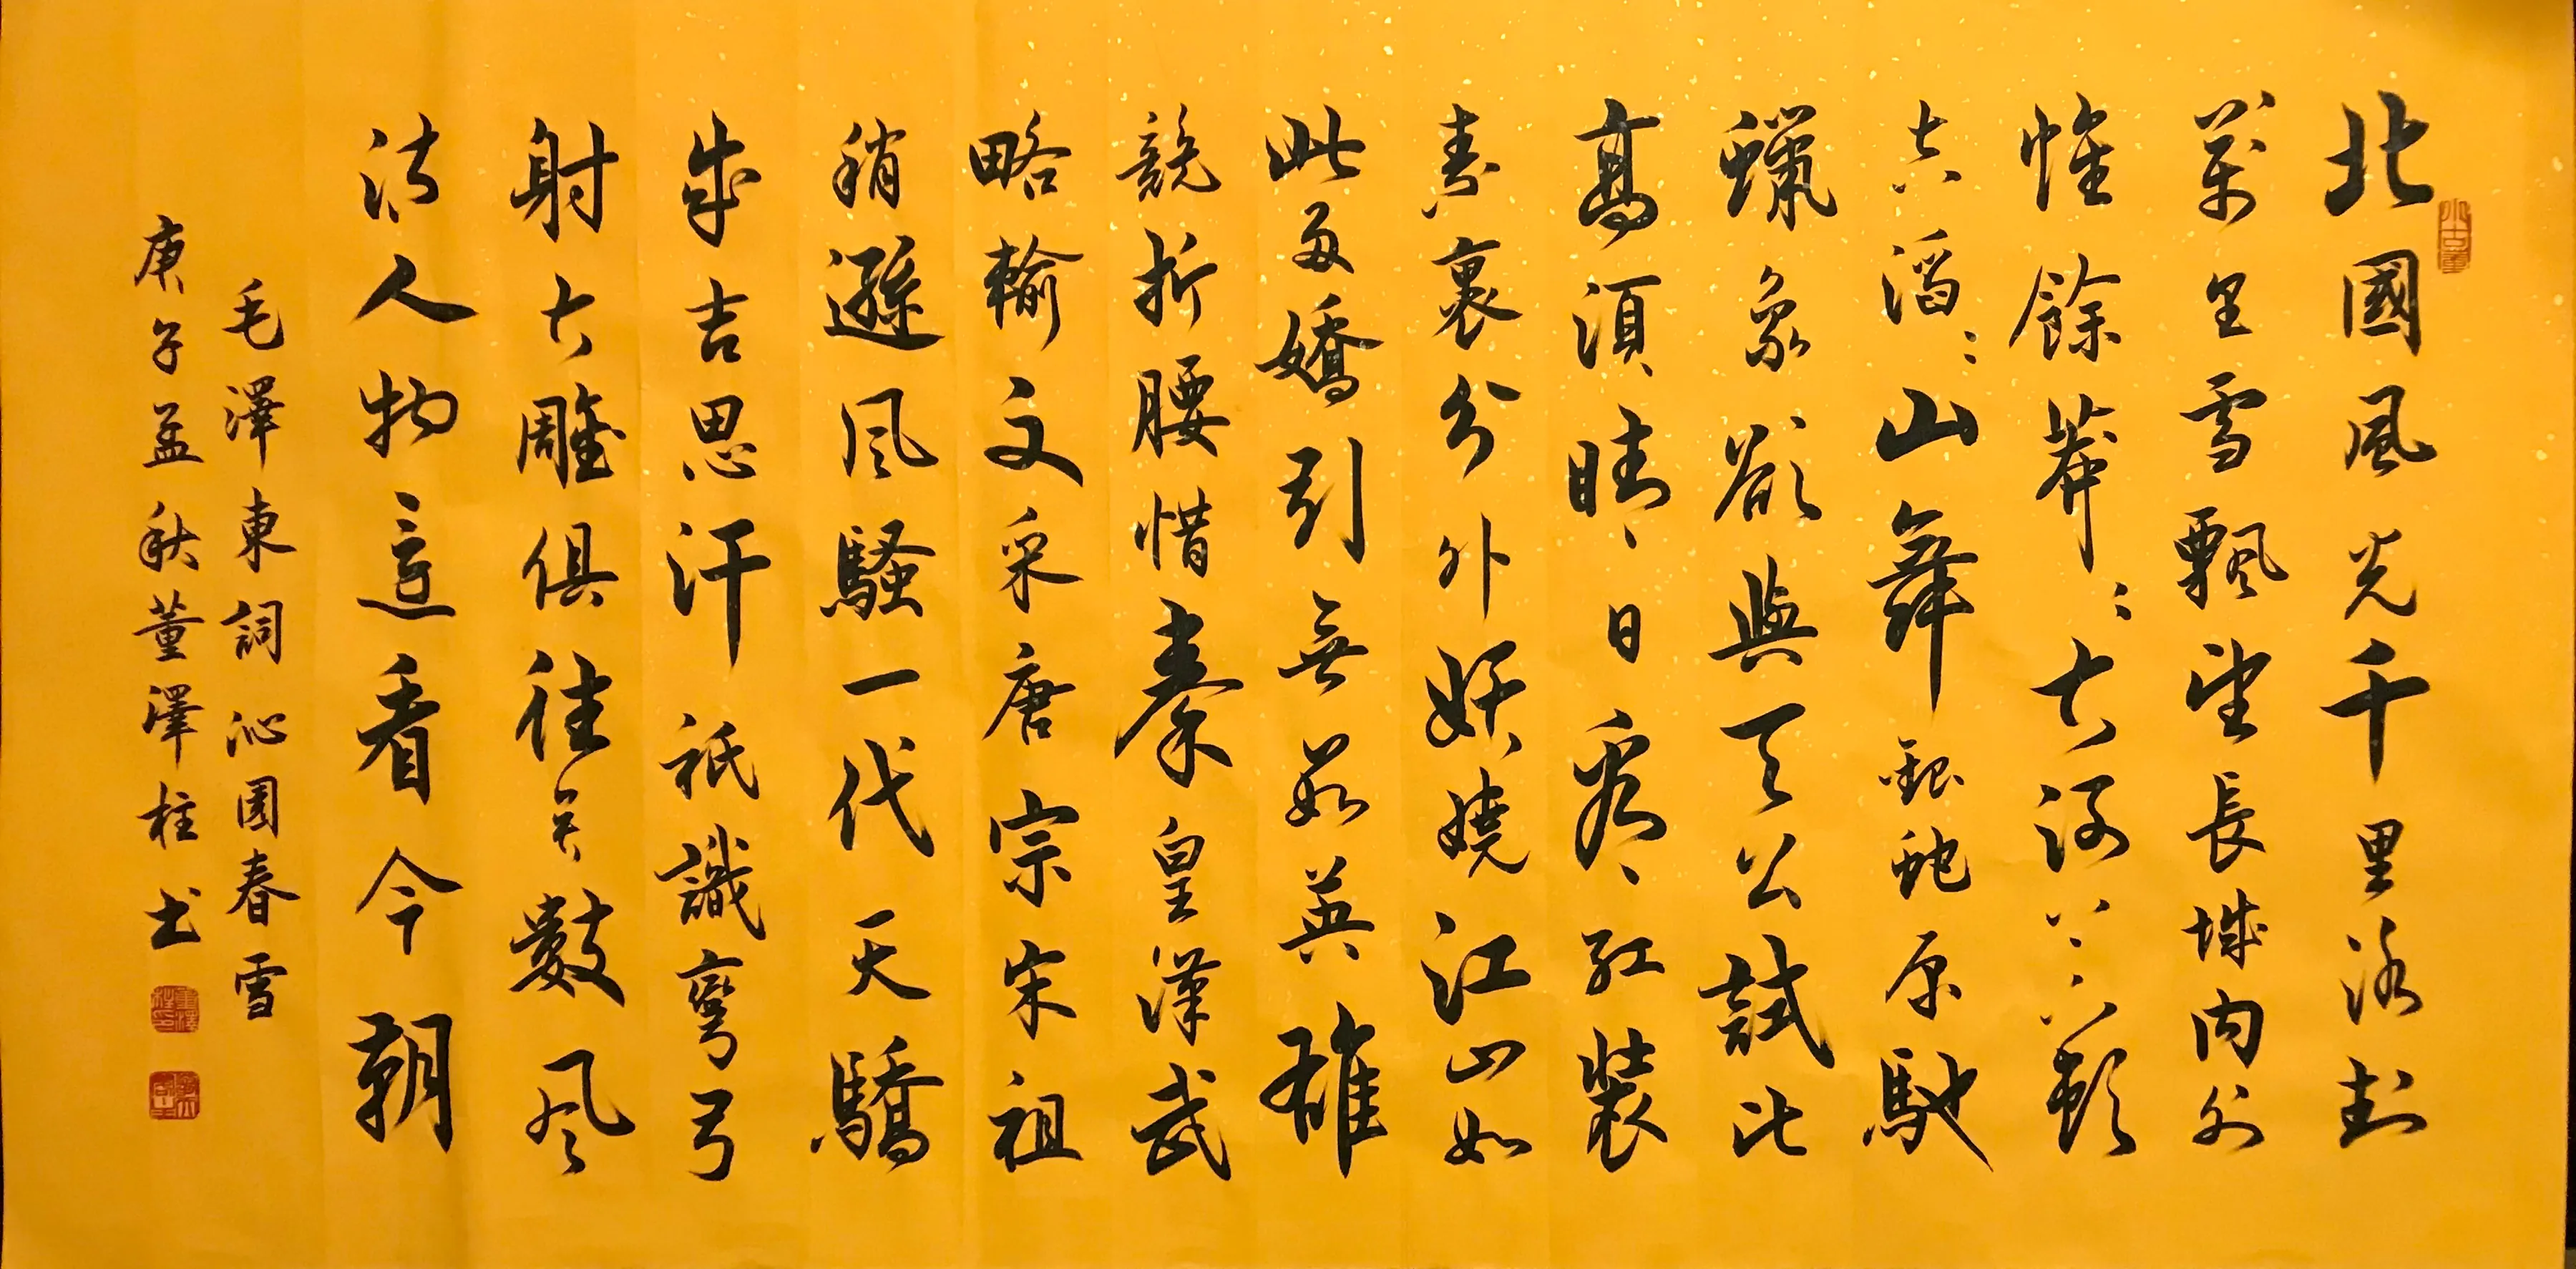 北國風光千里冰封
萬里雪飄望長城內外
惟餘莽〻大河上下頓
失滔〻山舞銀蛇原馳
蠟象欲與天公試比
高須晴日看紅裝
素裹分外妖嬈江山如
此多嬌引無數英雄
競折腰惜秦皇漢武
略輸文采唐宗宋祖
稍遜風騷一代天驕
成吉思汗祗識彎弓
射大雕俱往矣數風
流人物還看今朝
毛澤東詞沁園春雪
庚子孟秋董澤柱书